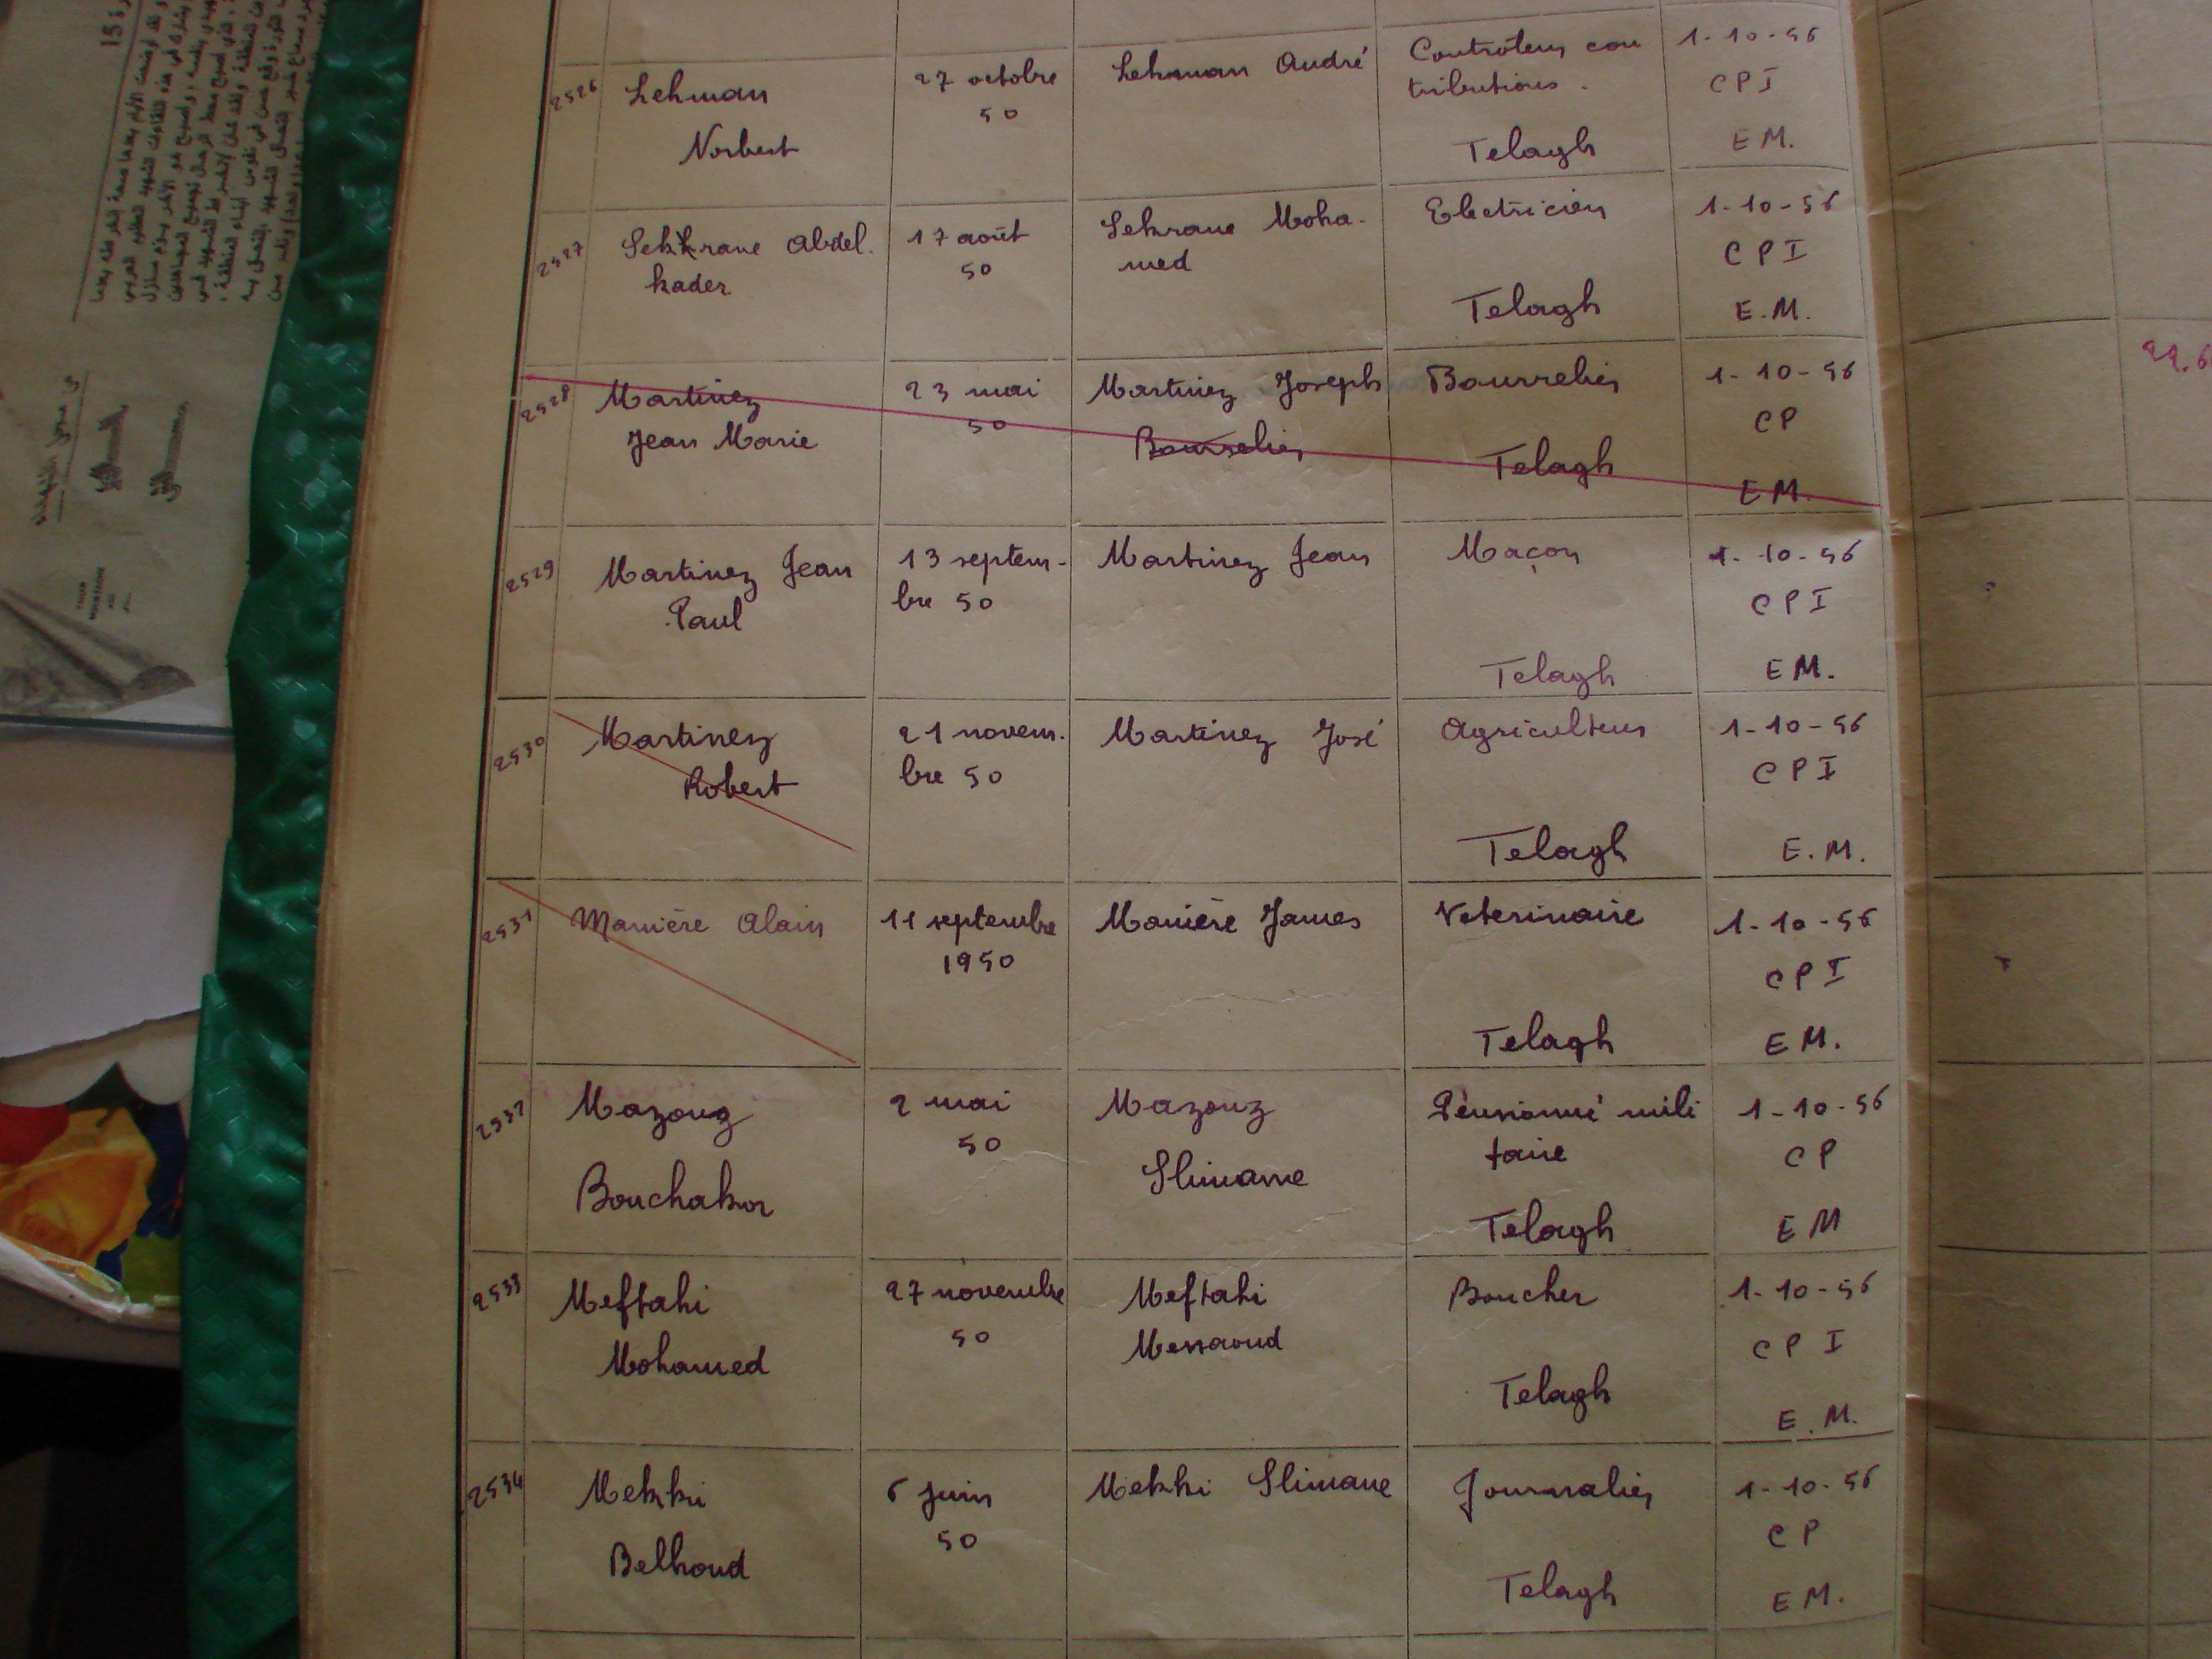 2526
Lehman
Norbert
27 octobre
50
Lehman André
Controleur con
tributions.
Telagh
1-10-56
CPI
EM.
2527
Sekkrane Abdel.
kader
17 août
50
Sekrane Moha-
med
Electricien
Telagh
1-10-56
CPI
E.M.
2528
Martinez
Jean Marie
23 mai
50
Martinez Joseph
Bourrelier
Bourrelier
Telagh
1-10-56
CP
EM.
2529
Martinez Jean
Paul
13 septem-
bre 50
Martinez Jean
Maçon
Telagh
1-10-56
CPI
EM.
2530
Martinez
Robert
21 novem.
bre 50
Martinez José
Agriculteur
Telagh
1-10-56
CPI
E.M.
2531
Manière Alain
11 septembre
1950
Manière James
Veterinaire
Telagh
1-10-56
CPI
EM.
2532
Mazouz
Bouchakor
2 mai
50
Mazouz
Slimane
Pensionné mili
taire
Telagh
1-10-56
CP
EM
2533
Meftahi
Mohamed
27 novembre
50
Meftahi
Messaoud
Boucher
Telagh
1-10-56
CPI
E.M.
2534
Mekki
Belhoud
6 juin
50
Mekki Slimane
Journalier
Telagh
1-10-56
CP
EM.